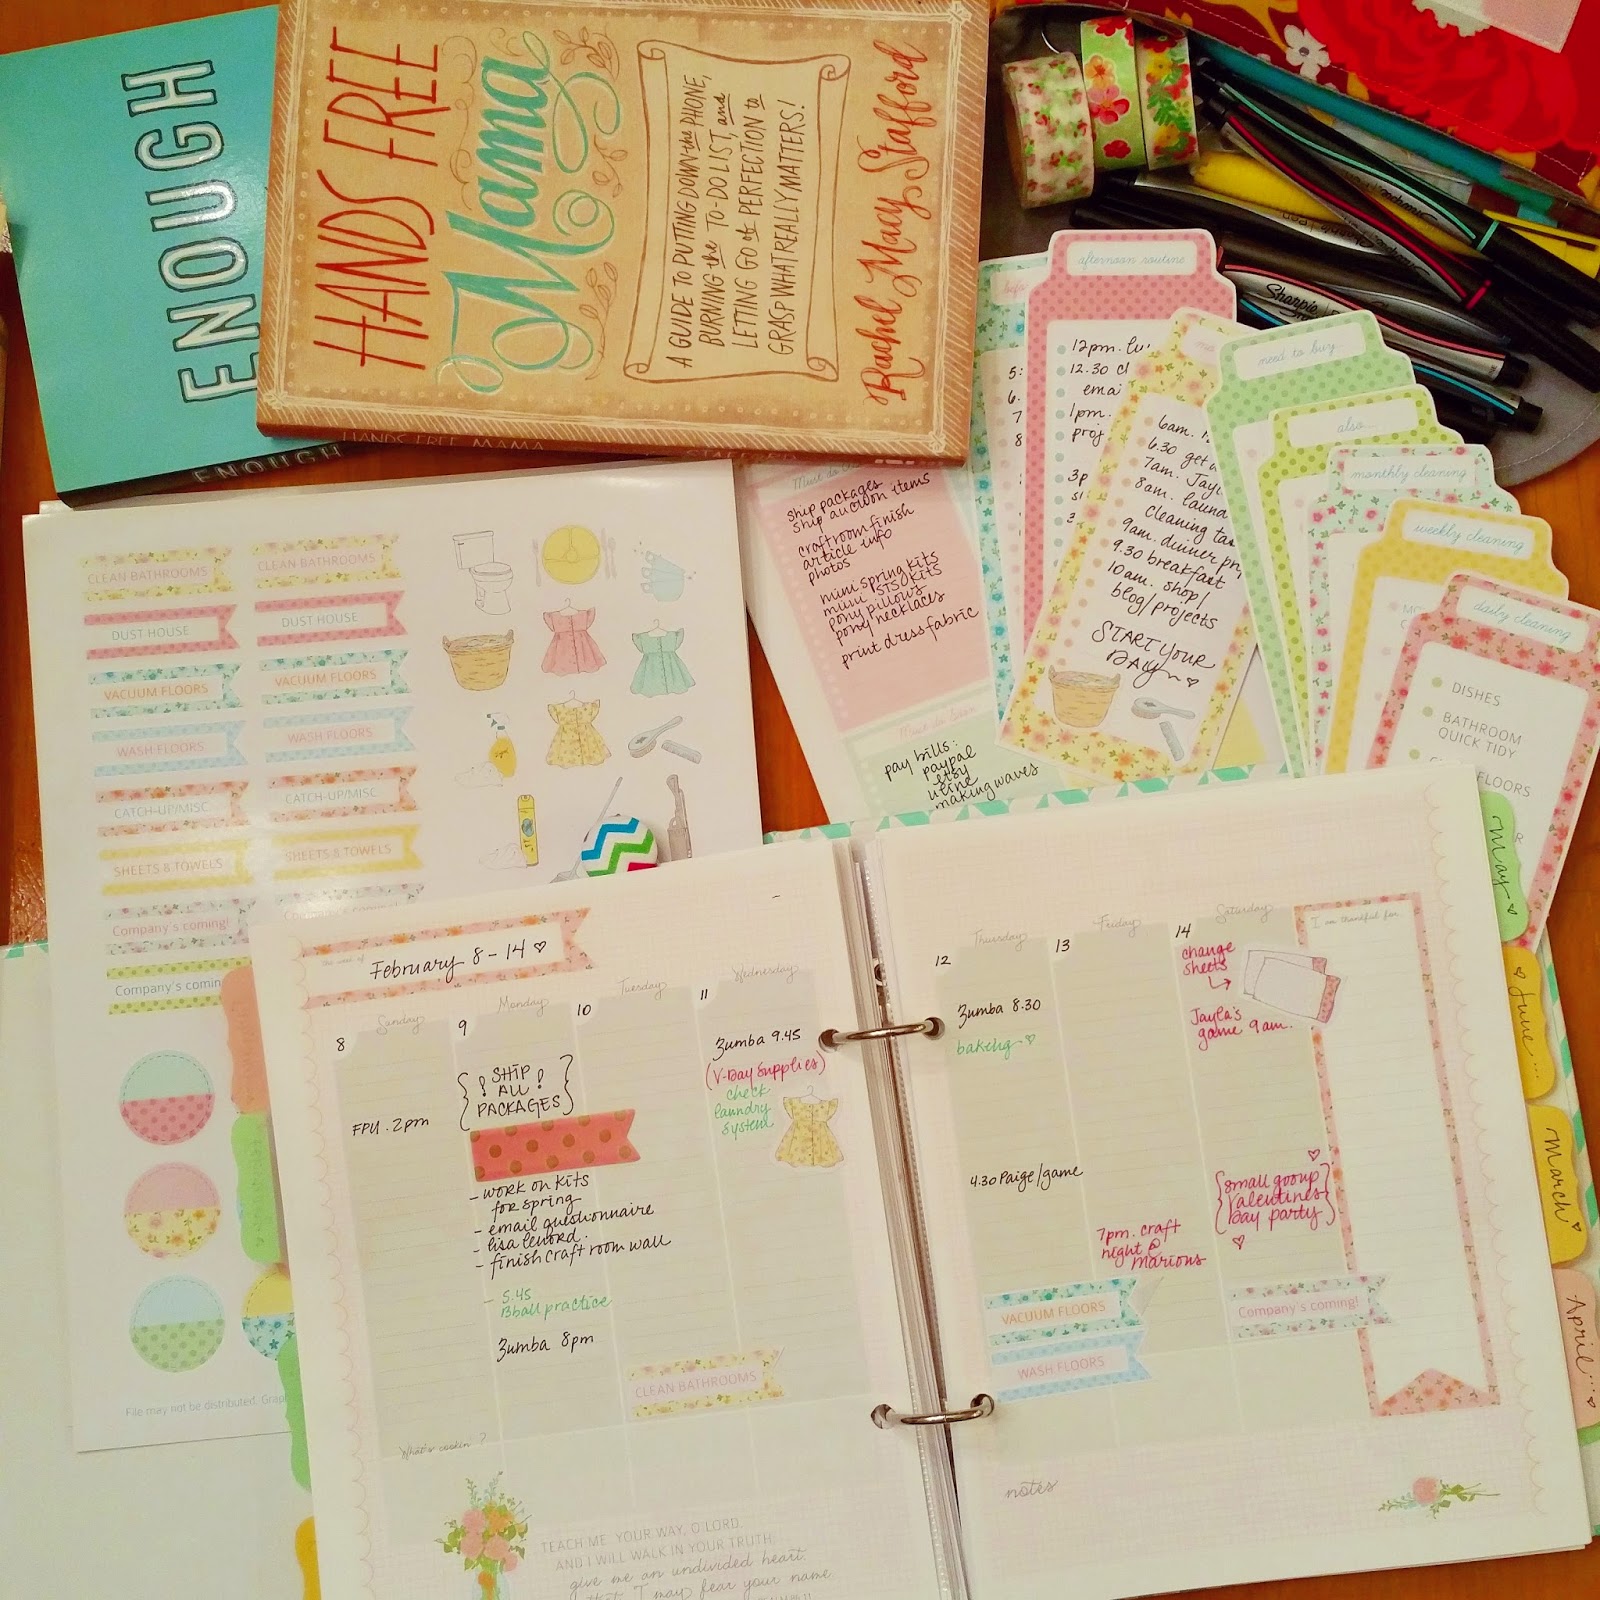 ENOUGH
ENOUGH
HANDS FREE
Mama
A GUIDE TO PUTTING DOWN the PHONE,
BURNING the TO-DO LIST, and
LETTING GO of PERFECTION to
GRASP WHAT REALLY MATTERS!
Rachel Macy Stafford
HANDS FREE MAMA
STAFFORD
Sharpie
afternoon routine
12pm.
12.30
emai
1pm.
proj
3p
need to buy
also...
monthly cleaning
weekly cleaning
daily cleaning
DISHES
BATHROOM
QUICK TIDY
FLOORS
6am.
6.30 get
7am. Jayl
8am. laund
cleaning tas
9am. dinner pr
9.30 breakfast
10am. shop/
blog/projects
START YOUR
DAY
ship packages
ship auction items
craftroom finish
article info
photos
mini spring kits
mini STS kits
pony pillows
pony necklaces
print dress fabric
pay bills:
paypal
etsy
uline
making waves
CLEAN BATHROOMS
CLEAN BATHROOMS
DUST HOUSE
DUST HOUSE
VACUUM FLOORS
VACUUM FLOORS
WASH FLOORS
WASH FLOORS
CATCH-UP/MISC
CATCH-UP/MISC
SHEETS & TOWELS
SHEETS & TOWELS
Company's coming!
Company's comin
File may not be distributed. Grap
the week of
February 8-14 ♡
Sunday
Monday
Tuesday
Wednesday
8
9
10
11
FPU. 2pm
{! SHIP
ALL !
PACKAGES}
- work on kits
for spring
- email questionnaire
- lisa lenord.
- finish craft room wall
- 5.45
Bball practice
Zumba 8pm
Zumba 9.45
(V-Day supplies)
check
laundry
system
CLEAN BATHROOMS
What's cookin'?
TEACH ME YOUR WAY, O LORD,
AND I WILL WALK IN YOUR TRUTH;
give me an undivided heart,
that I may fear your name.
Thursday
Friday
Saturday
I am thankful for...
12
13
14
Zumba 8.30
baking ♡
4.30 Paige/game
7pm. craft
night @
marions
change
sheets
Jayla's
game 9am.
{small group
valentines
Day party}
VACUUM FLOORS
WASH FLOORS
Company's coming!
notes
may
June...
march
April...